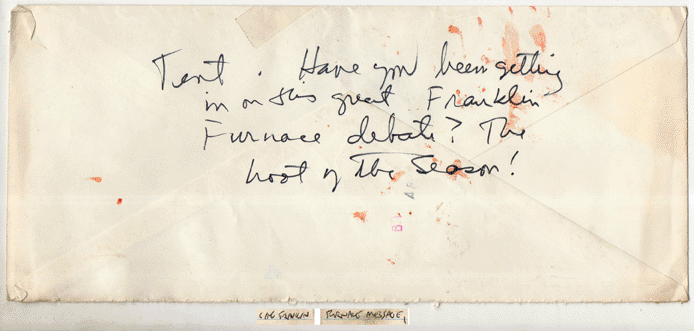 Tent. Have you been getting
in on this great Franklin
Furnace debate? The
hoot of The Season!
FRANKLIN FURNACE MESSAGE,